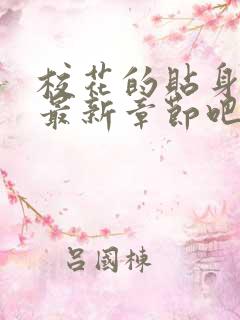 校花的貼身
最新章節吧
呂國棟